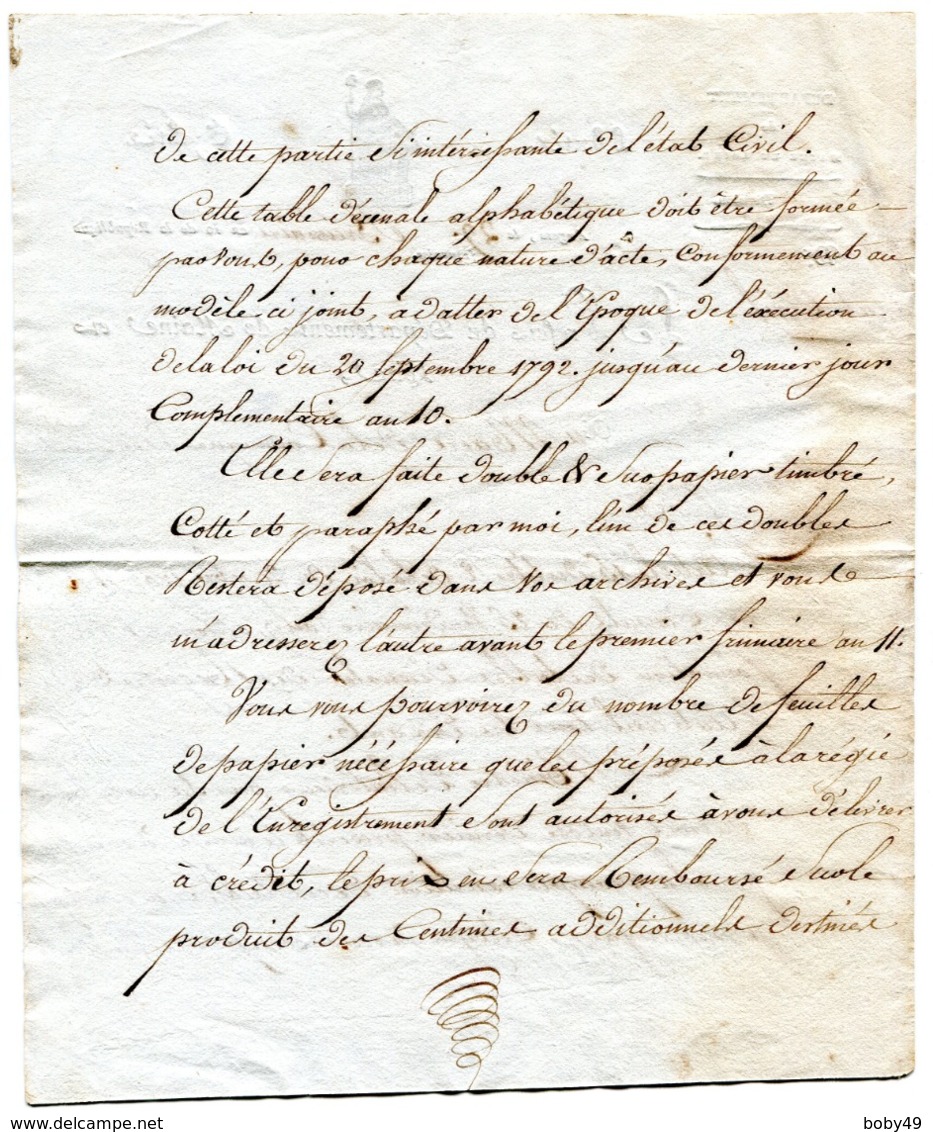 de cette partie si intéressante de l'état Civil.
Cette table décenale alphabétique doit être formée
par vous, pour chaque nature d'acte, conformement au
modèle ci joint, à datter de l'Epoque de l'éxécution
de la loi du 20 Septembre 1792. jusqu'au dernier jour
Complementaire an 10.
Elle sera faite double & sur papier timbré,
Cotté et paraphé par moi, l'un de ces doubles
Restera déposé dans vos archives et vous
m'adresserez l'autre avant le premier frimaire an 11.
Vous vous pourvoirez du nombre de feuilles
de papier nécéssaire que les préposés à la régie
de l'Enregistrement sont autorisés à vous délivrer
à crédit, le prix en sera Remboursé sur le
produit des Centimes additionnels destinés
boby49